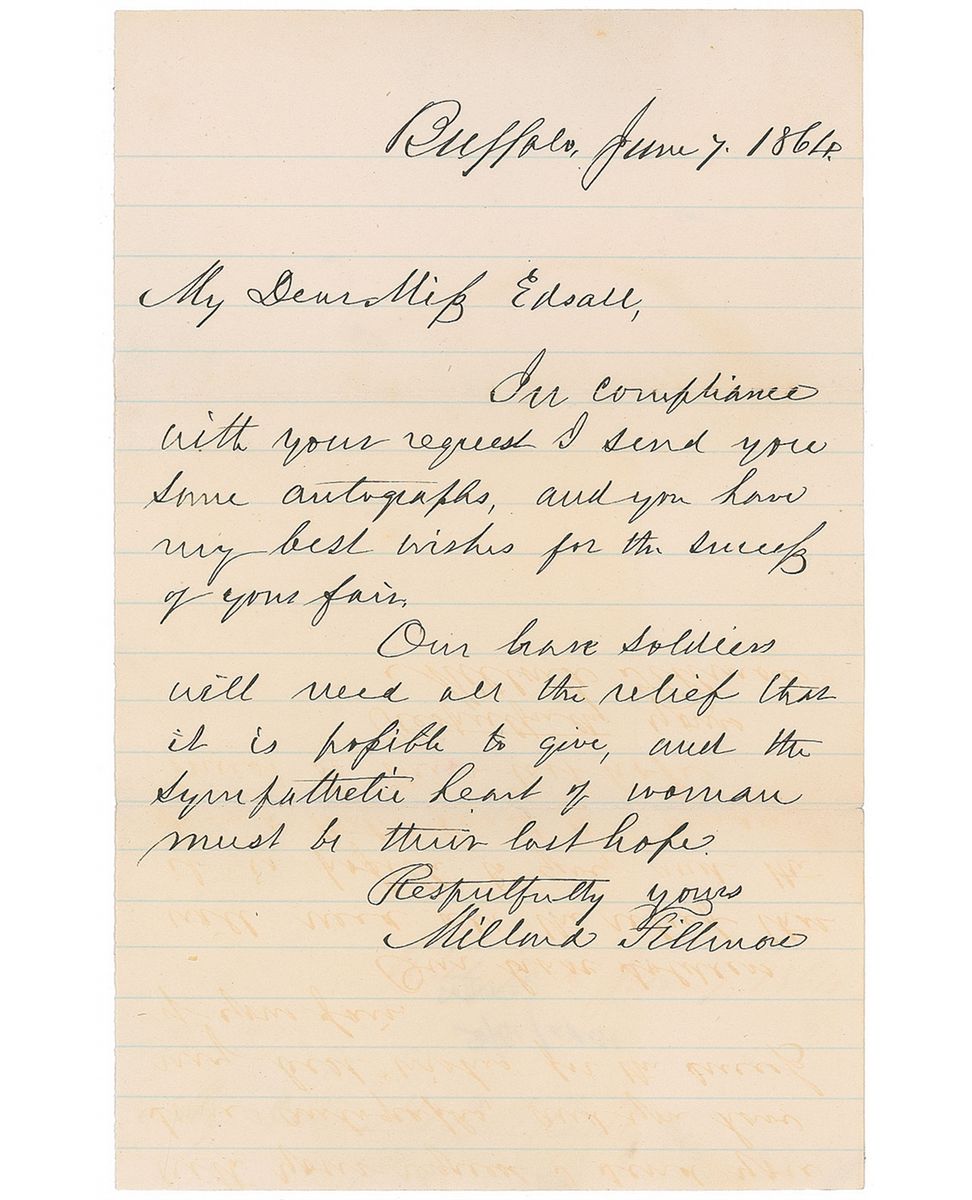 Buffalo, June 7. 1864.
My Dear Miss Edsall,
In compliance
with your request I send you
some autographs, and you have
my best wishes for the success
of your fair.
Our brave soldiers
will need all the relief that
it is possible to give, and the
sympathetic heart of woman
must be their last hope.
Respectfully yours
Millard Fillmore